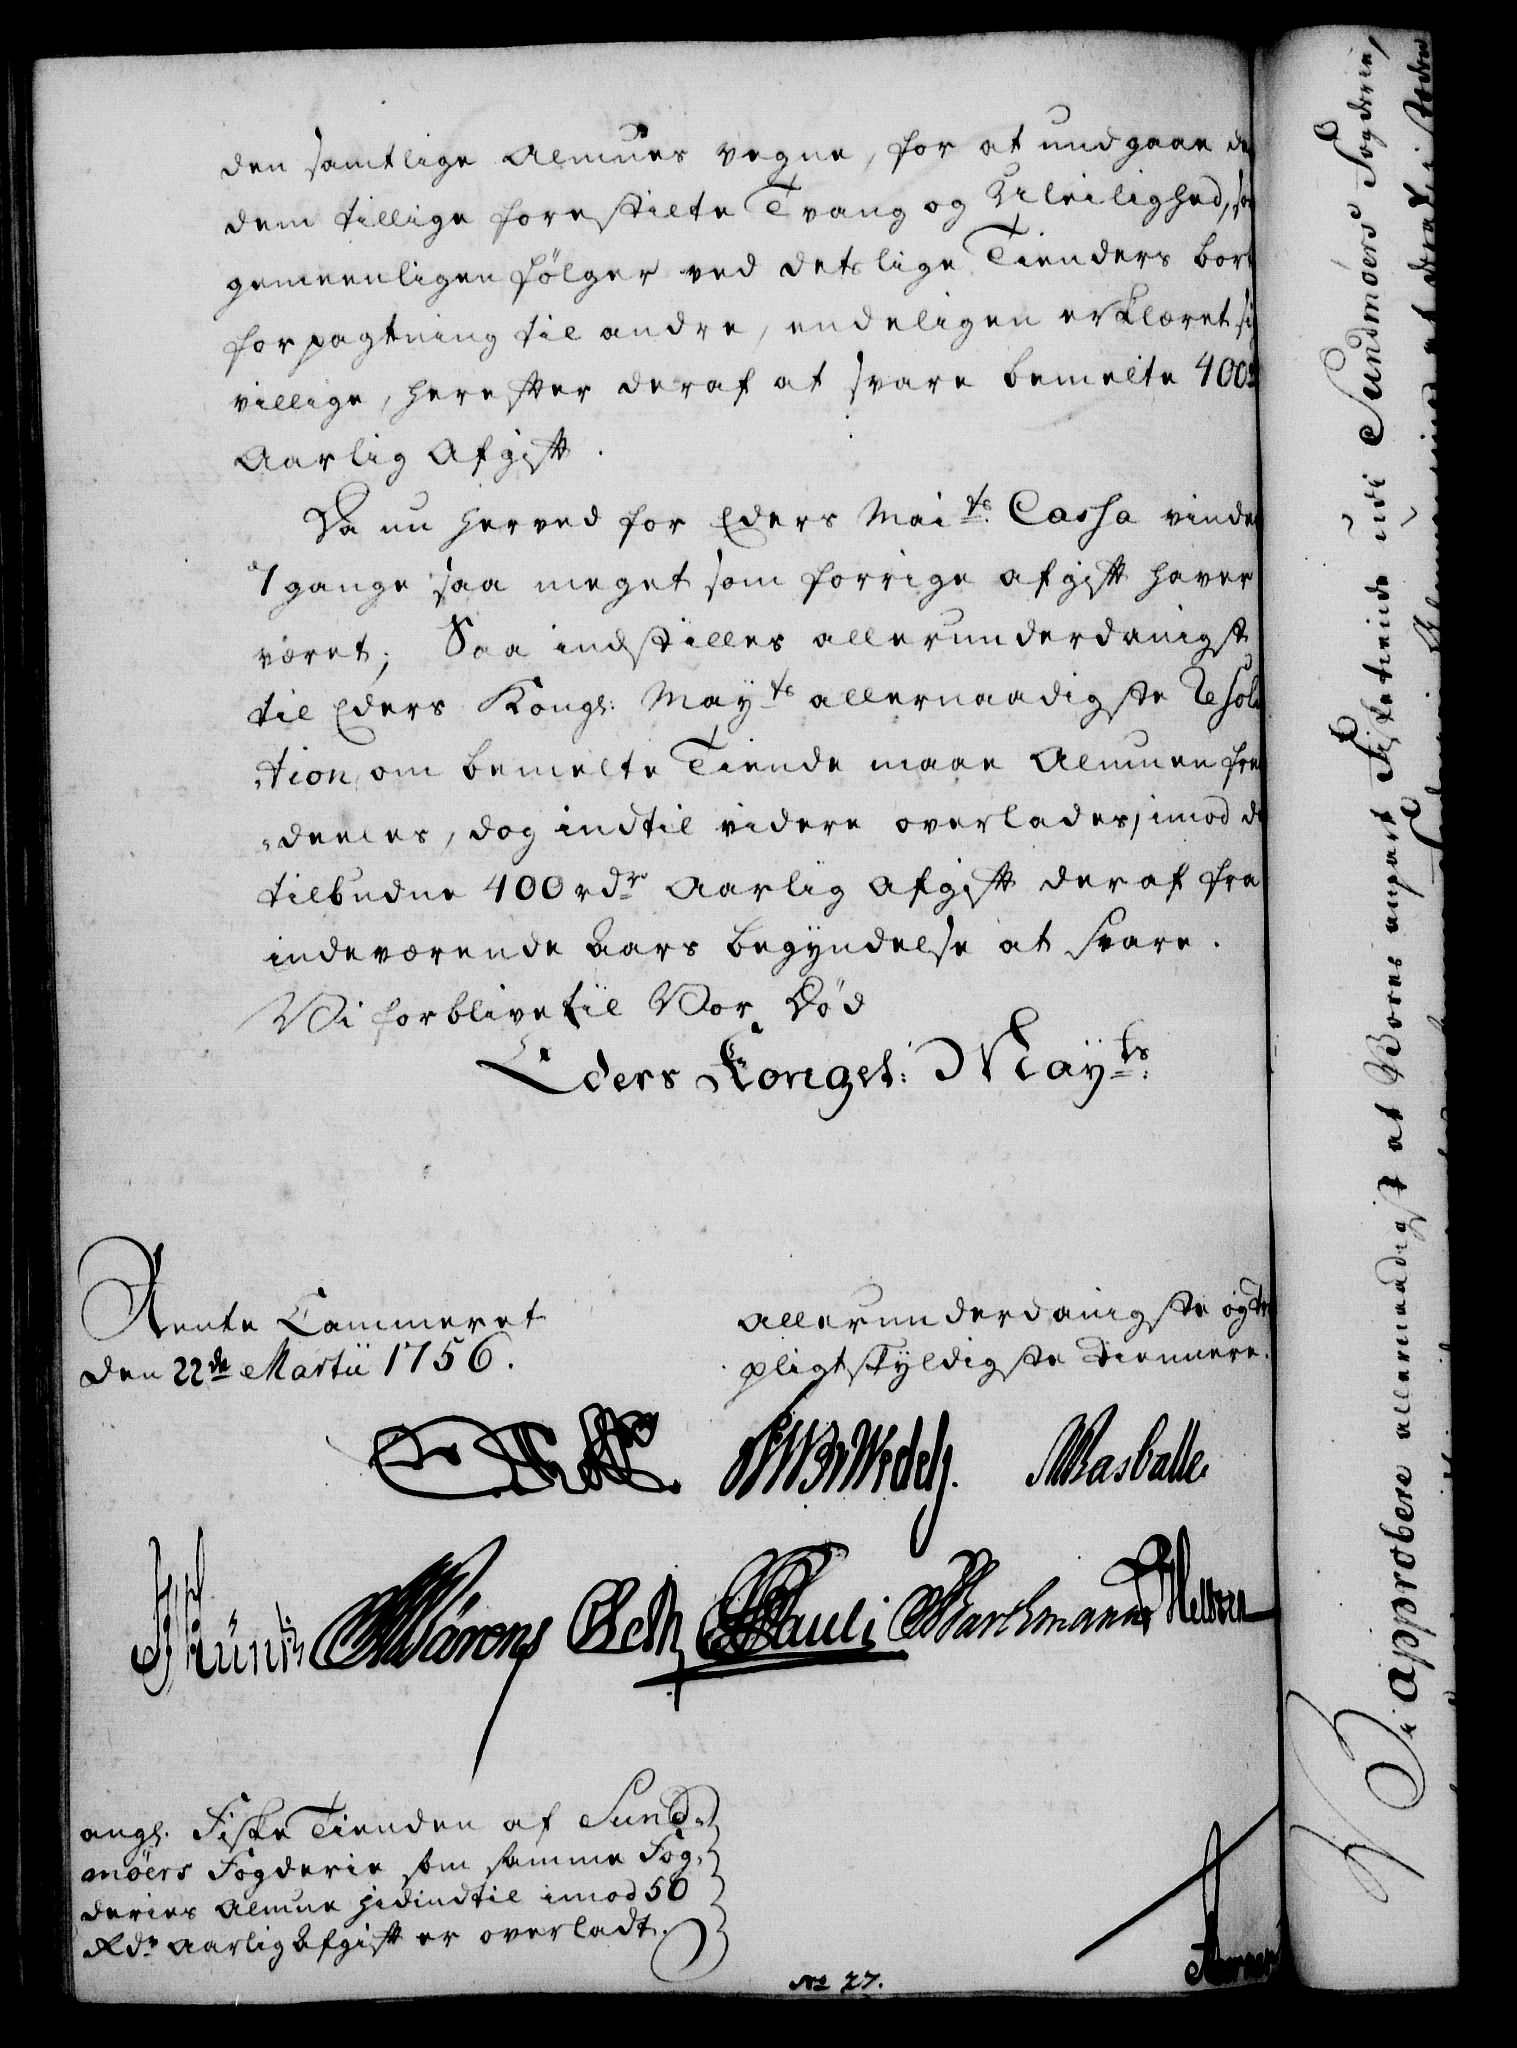 den samtlige Almues vegne, for at undgaae de
dem tillige forestilte Tvang og Uleilighed, so
gemeenligen følger ved detslige Tienders bort
forpagtning til andre, endeligen erklæret si
villige, herefter deraf at svare bemelte 400
Aarlig Afgift.
Da nu herved for Eders Mai ts. Cassa vindes
7 gange saa meget som forrige afgift haver
været; Saa indstilles allerunderdanigst
til Eders Kongl: May ts allernaadigste Resolu
-tion, om bemelte Tiende maae Almuen frem
-deeles, dog indtil videre overlades, imod de
tilbudne 400 rdr Aarlig Afgift deraf fra
indeværende Aars begyndelse at svare.
Vi forblive til Vor Død
Eders Kongel: May ts:
Rente Cammeret
den 22de Martii 1756.
allerunderdanigste og tro
pligtskyldigste Tiennere.
Wedel.
Masballe.
Pauli
angl. Fiske Tienden af Sund-
möers Fogderie som samme Fog-
deries Almue hidindtil imod 50
Rdr Aarlig Afgift er overladt.
No 27.
Vi approbere allernaadigst at Vores anpart Fisketiende udi Sundmöers Fogderie,